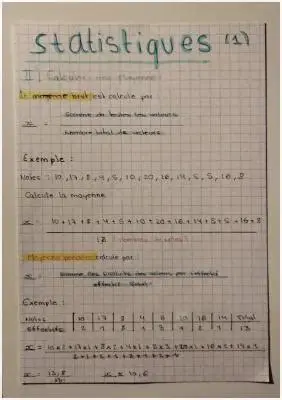 Statistiques (1)
II) Calculer une moyenne :
La moyenne brut est calculé par
x = Somme de toutes les valeurs
Nombre total de valeurs
Exemple :
Notes : 10, 17, 8, 4, 5, 10, 20, 16, 14, 5, 5, 16, 8
Calcule la moyenne
x = 10+17+8+4+5+10+20+16+14+5+5+16+8
Moyenne pondérée calculé par
x = Somme des produits des valeurs par l'effectif
effectif total
Exemple :
Notes 10 17 8 4 20 16 14 Total
Effectifs 2 1 2 1 3 1 2 1 13
x =
x = x = 10,6